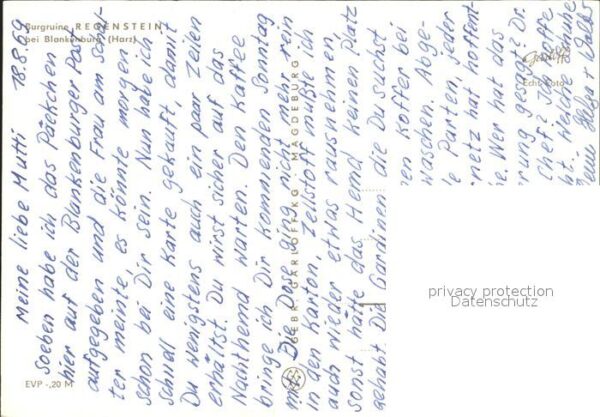 Burgruine REGENSTEIN
bei Blankenburg (Harz)
18.8.69
Meine liebe Mutti
Soeben habe ich das Päckchen
hier auf der Blankenburger Post
aufgegeben und die Frau am Schal-
ter meinte, es könnte morgen
schon bei Dir sein. Nun habe ich
schnell eine Karte gekauft, damit
Du wenigstens auch ein paar Zeilen
erhältst. Du wirst sicher auf das
Nachthemd warten. Den Kaffee
bringe ich Dir kommenden Sonntag
mit. Die Dose ging nicht mehr rein
in den Karton, Zellstoff mußte ich
auch wieder etwas rausnehmen,
sonst hätte das Hemd keinen Platz
gehabt. Die Gardinen die Du suchst
en Koffer bei
waschen. Abge-
Parten, jeder
netz hat hoffent-
e. Wer hat das
rung gesagt? Dr.
Chef? Ich hoffe
ht. Weiche Ruhe
Helga &
GEBR. GARLOFF KG · MAGDEBURG
Echt Foto
EVP -,20 M
privacy protection
Datenschutz